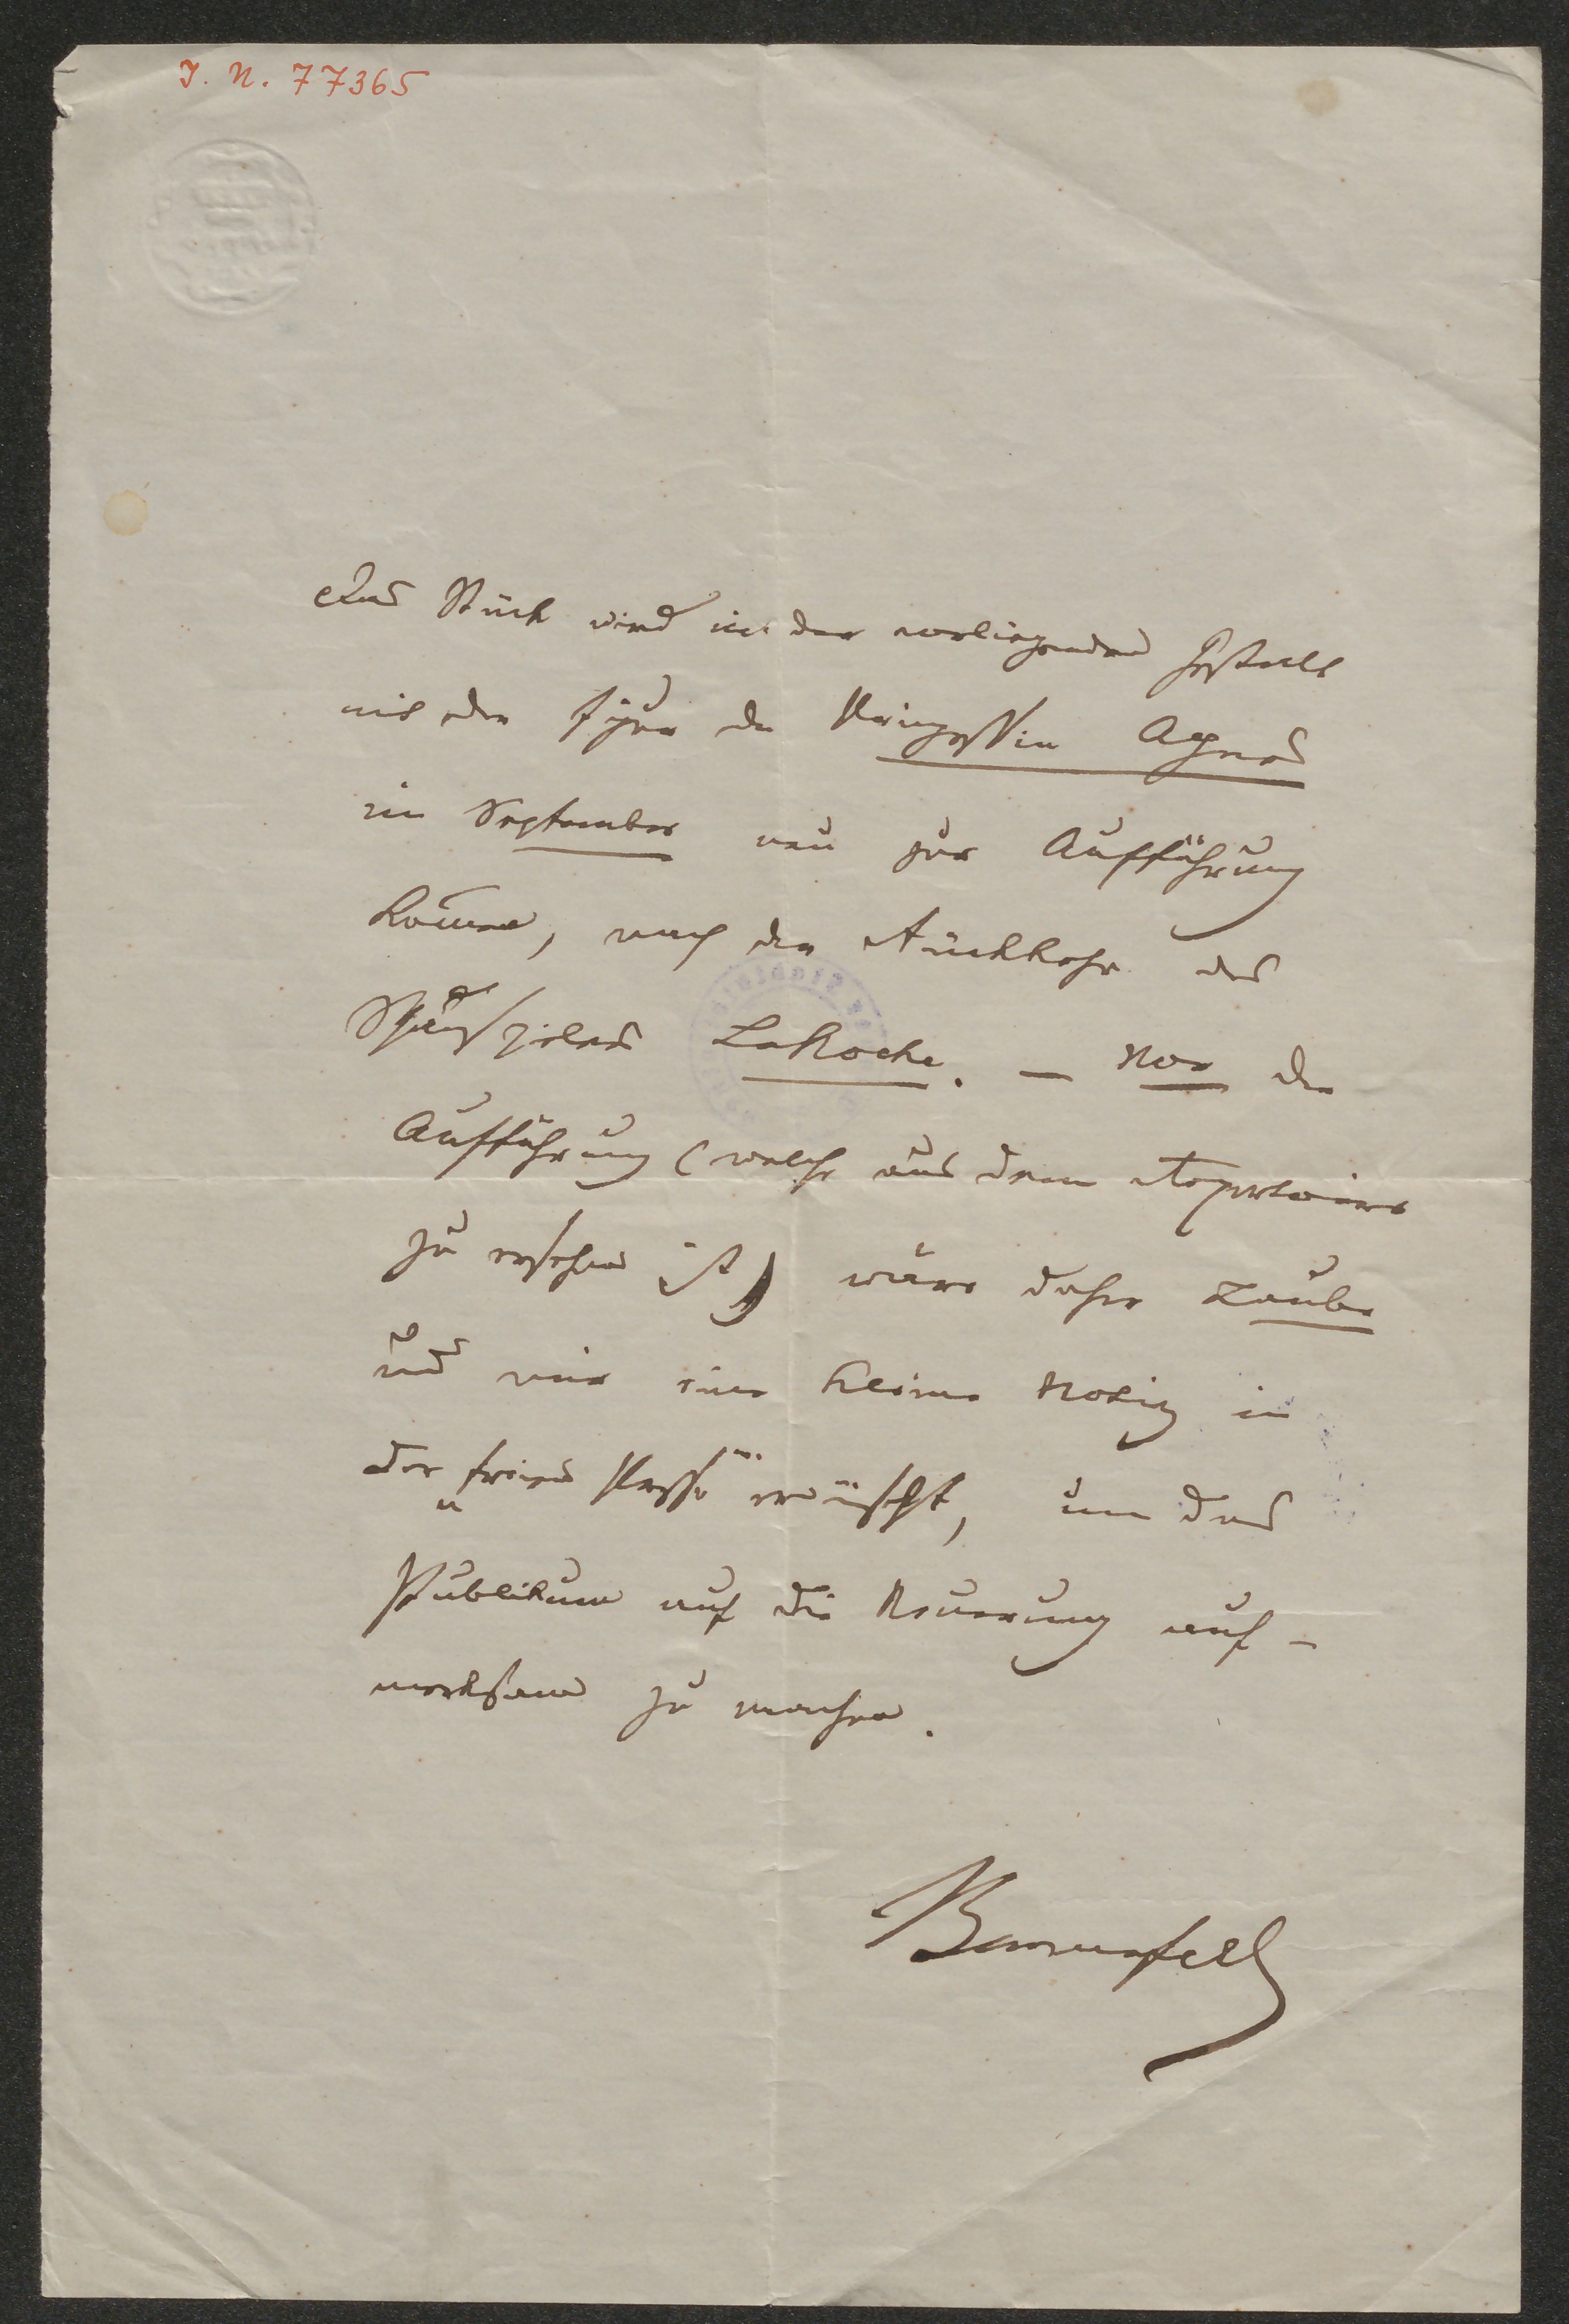 I. N. 77365
Das Stück wird in der vorliegenden Gestalt
mit der Figur der Prinzessin Agnes
im September neu zur Aufführung
kom̄en, nach der Rückkehr des
Schauspielers LaRoche. — Vor der
Aufführung (welche aus dem Repertoire
zu ersehen ist) wäre daher Laube
und mir eine kleine Notiz in
der „freien Presse" erwünscht, um das
Publikum auf die Neuerung auf-
merksam zu machen.
Bauernfeld